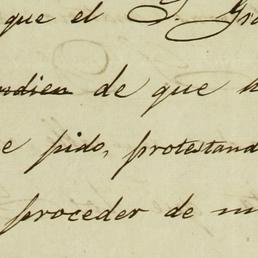 que el S. Gra
de que h
e pido, protestand
proceder de m